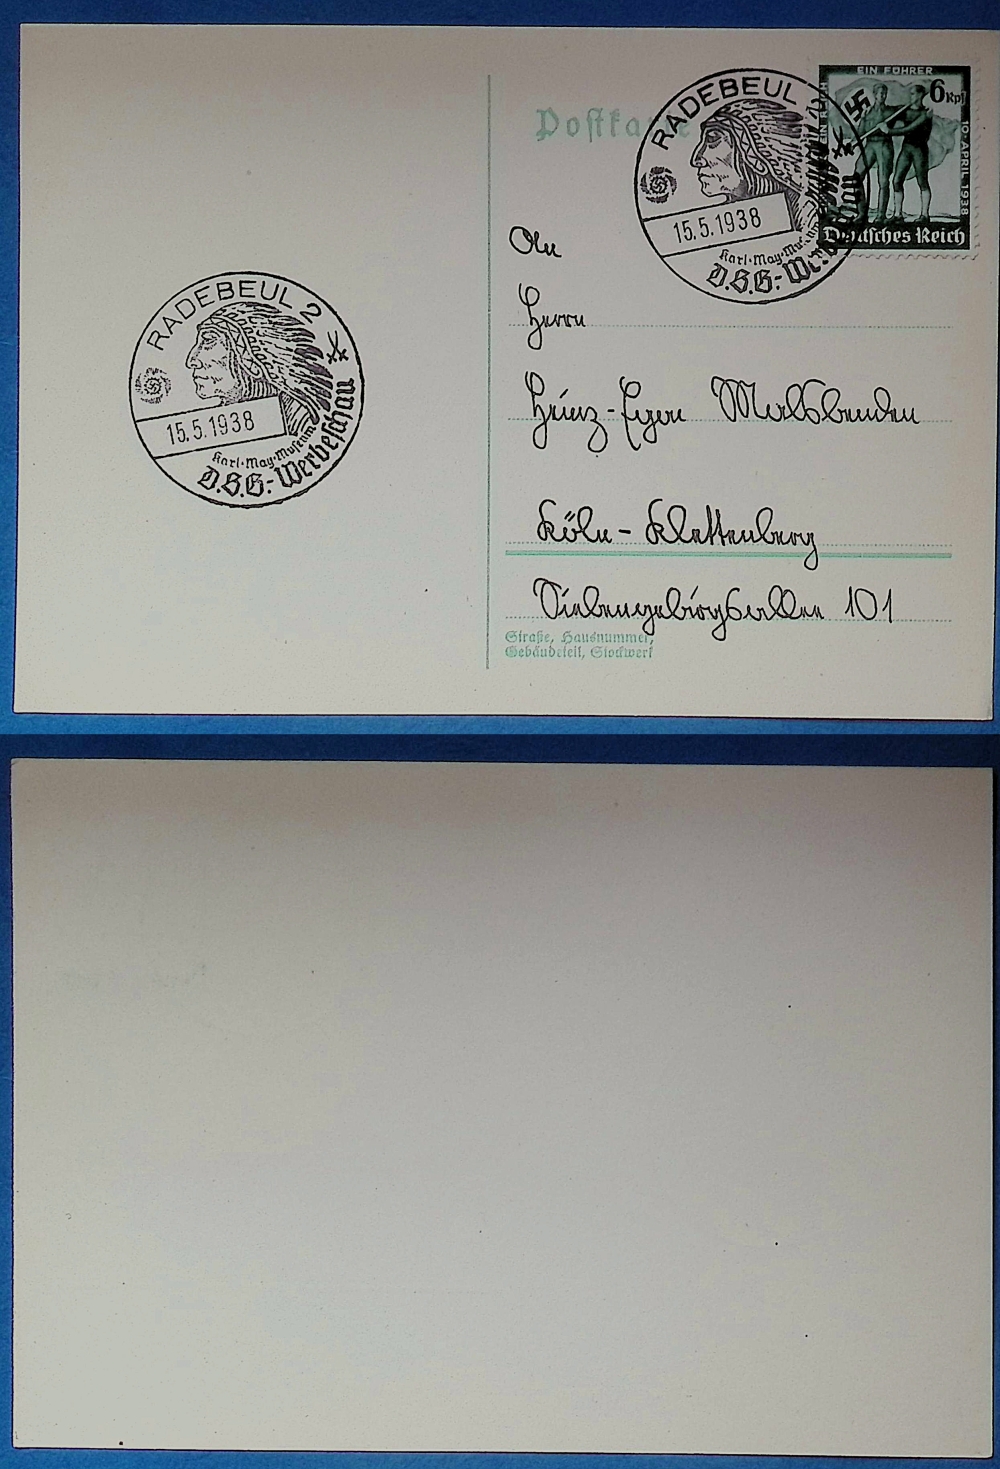 Postkarte
RADEBEUL 2
15.5.1938
Karl-May-Museum
D.S.G.-Werbeschau
EIN REICH
EIN FÜHRER
6 Rpf
10. APRIL 1938
Deutsches Reich
An
Herrn
Heinz-Egon
Köln-Klettenberg
Siebengebirgsallee 101
Straße, Hausnummer,
Gebäudeteil, Stockwerk
RADEBEUL 2
15.5.1938
Karl-May-Museum
D.S.G.-Werbeschau